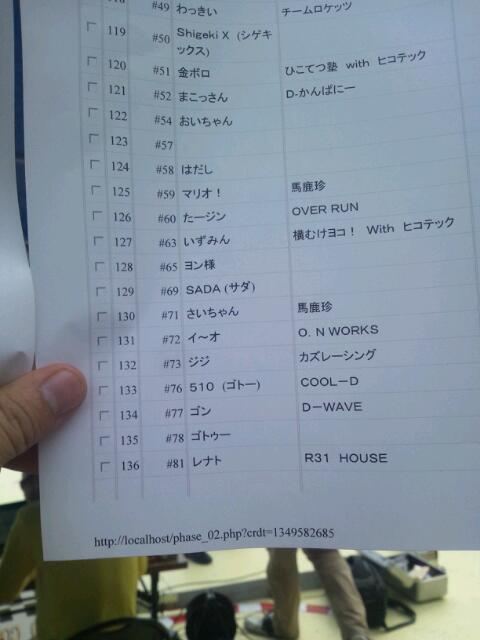 #49 わっきい チームロケッツ
119 #50 Shigeki X (シゲキ
ックス)
120 #51 金ボロ ひこてつ塾 with ヒコテック
121 #52 まこっさん D-かんぱにー
122 #54 おいちゃん
123 #57
124 #58 はだし
125 #59 マリオ! 馬鹿珍
126 #60 たージン OVER RUN
127 #63 いずみん 横むけヨコ! With ヒコテック
128 #65 ヨン様
129 #69 SADA (サダ)
130 #71 さいちゃん 馬鹿珍
131 #72 イ~オ O. N WORKS
132 #73 ジジ カズレーシング
133 #76 510 (ゴトー) COOL-D
134 #77 ゴン D-WAVE
135 #78 ゴトゥー
136 #81 レナト R31 HOUSE
http://localhost/phase_02.php?crdt=1349582685